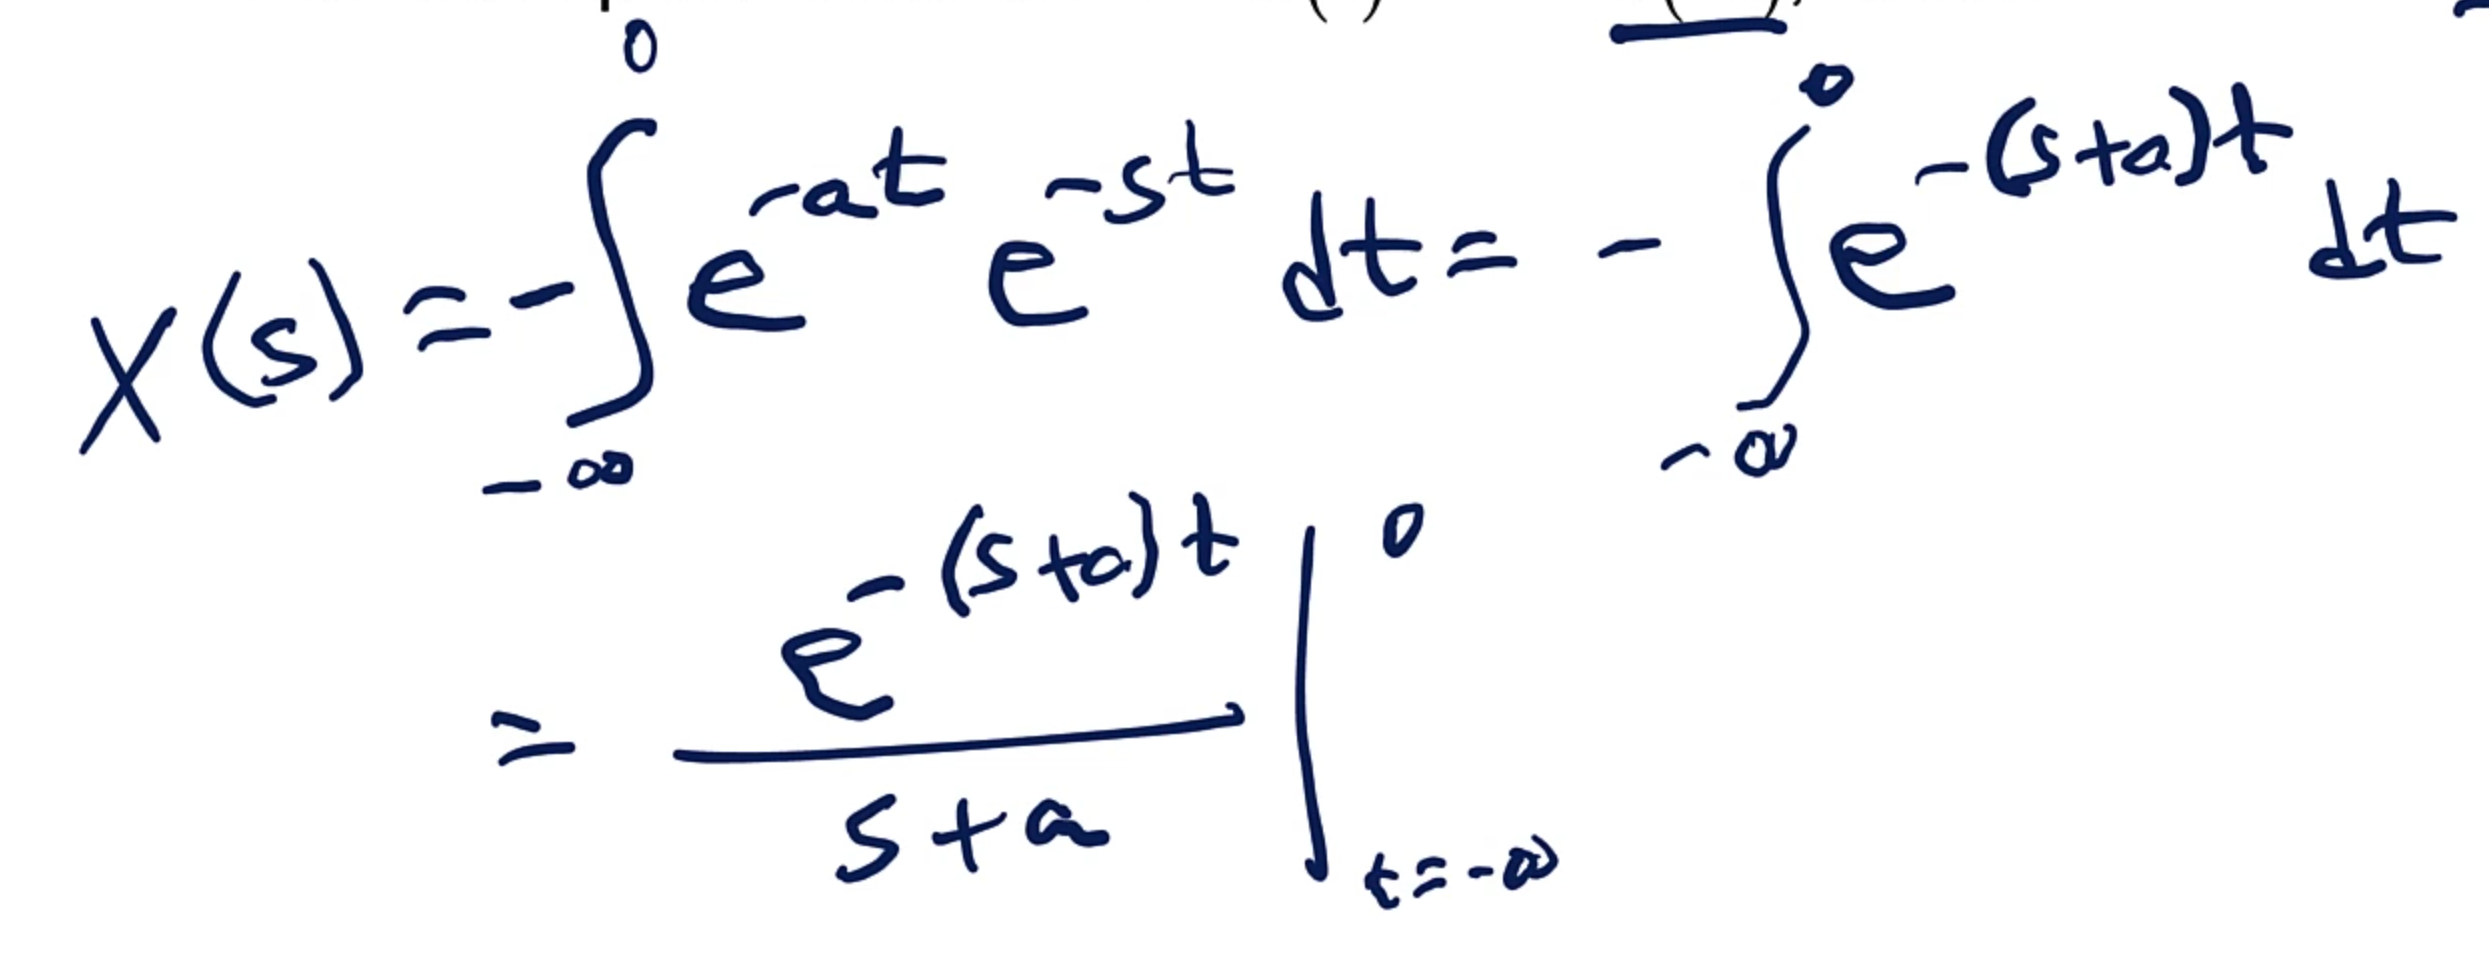 X(s) = -∫_{-∞}^{0} e^{-at} e^{-st} dt = -∫_{-∞}^{0} e^{-(s+a)t} dt
= \frac{e^{-(s+a)t}}{s+a} |_{t=-∞}^{0}